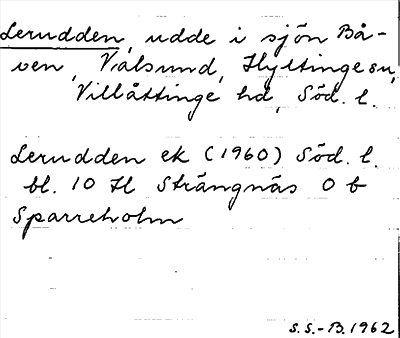 Lerudden, udde i sjön Bå-
ven, Valsund, Hyltinge sn,
Villåttinge hd, Söd. l.
Lerudden ek (1960) Söd. l.
bl. 10 Il Strängnäs O b
Sparreholm
S.S.-B. 1962